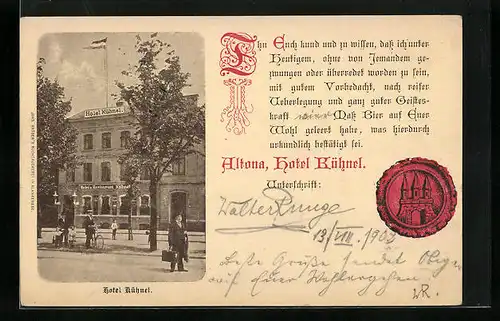 Hotel Kühnel.
Hotel u. Restaurant Kühnel
Thu Euch kund und zu wissen, daß ich unter
Heutigem, ohne von Jemandem ge-
zwungen oder überredet worden zu sein,
mit gutem Vorbedacht, nach reifer
Ueberlegung und ganz guter Geistes-
kraft Maß Bier auf Euer
Wohl geleert habe, was hierdurch
urkundlich bestätigt sei.
Altona, Hotel Kühnel.
Unterschrift:
Walter Runge
13/VIII. 1903
Beste Grüße sendet Obiger
auf Euer Wohlergehen.
WR.
Hotel Kühnel.